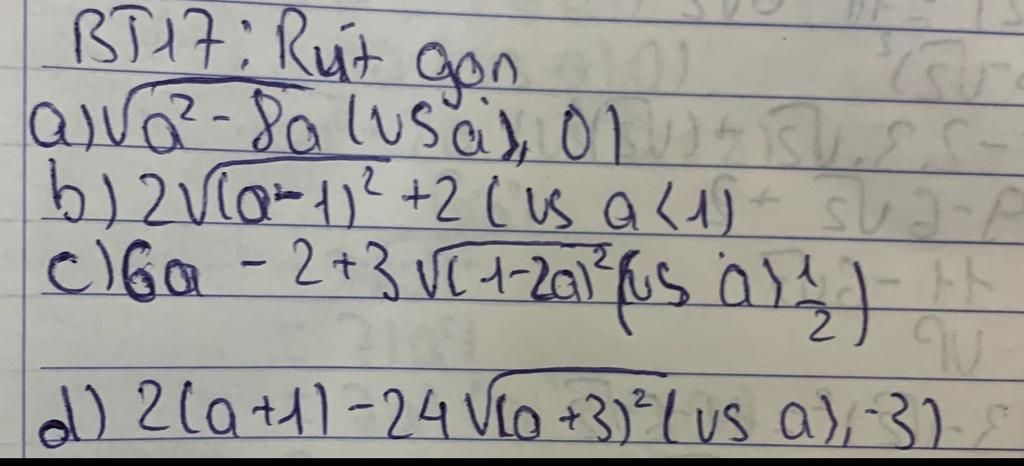 BT17: Rút gọn
a) √a² - 8a (vs a ≥ 0)
b) 2√(a-1)² + 2 (vs a < 1)
c) 6a - 2 + 3√(1-2a)² (vs a > 1/2)
d) 2(a+1) - 24√(a+3)² (vs a ≥ -3)